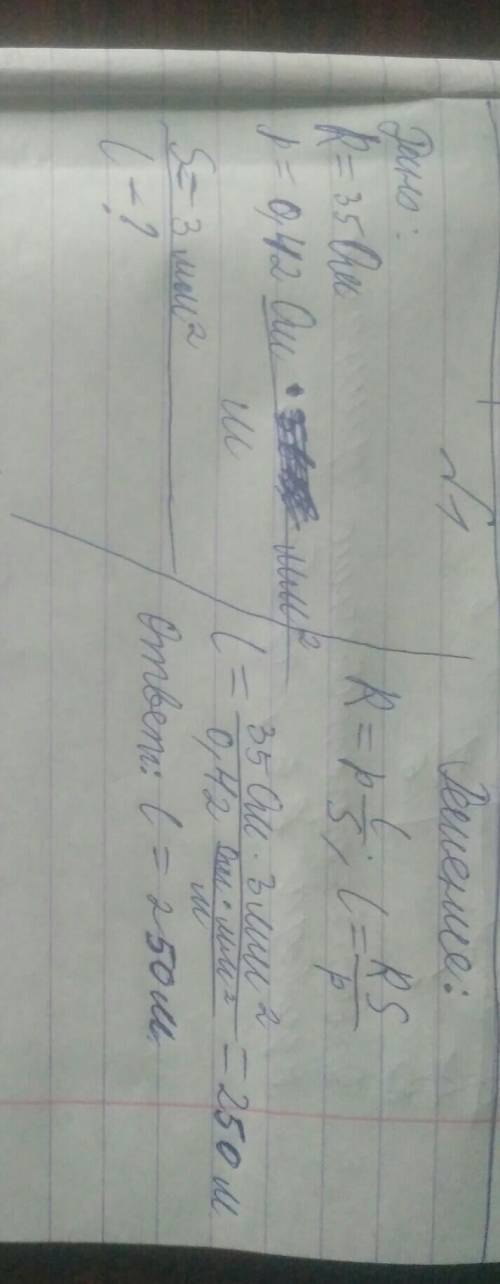 √1
Дано:
R = 35 Ом
p = 0,42 Ом · мм²
м
S = 3 мм²
l - ?
Решение:
R = p l/S; l = RS/p
l = 35 Ом · 3 мм² / 0,42 Ом · мм²/м = 250 м
Ответ: l = 250 м.